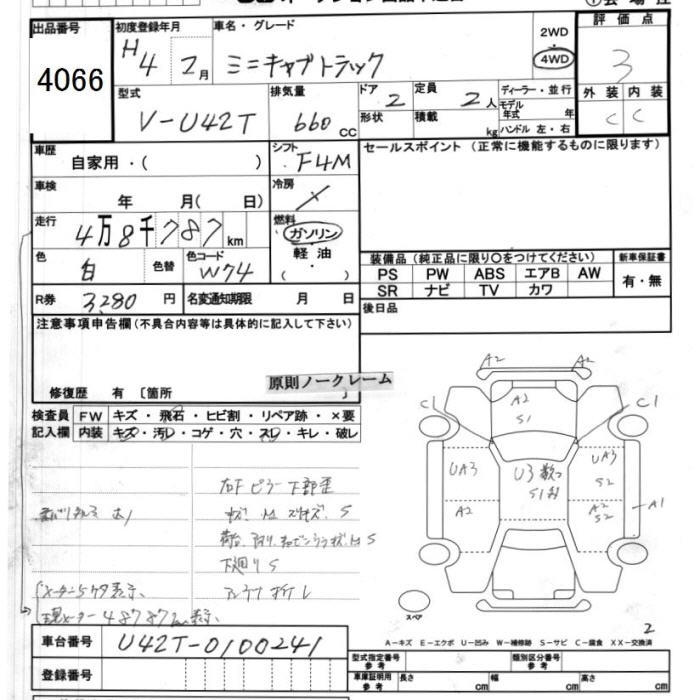 出品番号
4066
初度登録年月
H4 2月
車名・グレード
ミニキャブトラック
2WD
4WD
評価点
3
外装 内装
C C
型式
V-U42T
排気量
660 CC
ドア 2
形状
定員 2人
積載 kg
ディーラー・並行
モデル年式 年
ハンドル 左・右
車歴
自家用・( )
シフト
F4M
セールスポイント (正常に機能するものに限ります)
車検
年 月( 日)
冷房
走行
4万8千787 km
燃料
ガソリン
軽油
( )
色
白
色替
色コード
W74
装備品 (純正品に限り○をつけてください)
新車保証書
PS PW ABS エアB AW
有・無
SR ナビ TV カワ
R券
3,280 円
名変通知期限 月 日
後日品
注意事項申告欄 (不具合内容等は具体的に記入して下さい)
原則ノークレーム
修復歴 有 〔箇所 〕
検査員記入欄
FW キズ・飛石・ヒビ割・リペア跡・×要
内装 キズ・汚レ・コゲ・穴・スレ・キレ・破レ
右Fピラー下部歪
下廻りS
メーター5ケタ表示
現メーター48787km表示
A2 A2
C1 A2 S1 C1
UA3 U3 UA3
S2
A2 A2 S2 A1
スペア
2
A-キズ E-エクボ U-凹み W-補修跡 S-サビ C-腐食 XX-交換済
車台番号
U42T-0100241
登録番号
型式指定番号 参考
類別区分番号 参考
車庫証明用 参考
長さ cm
幅 cm
高さ cm